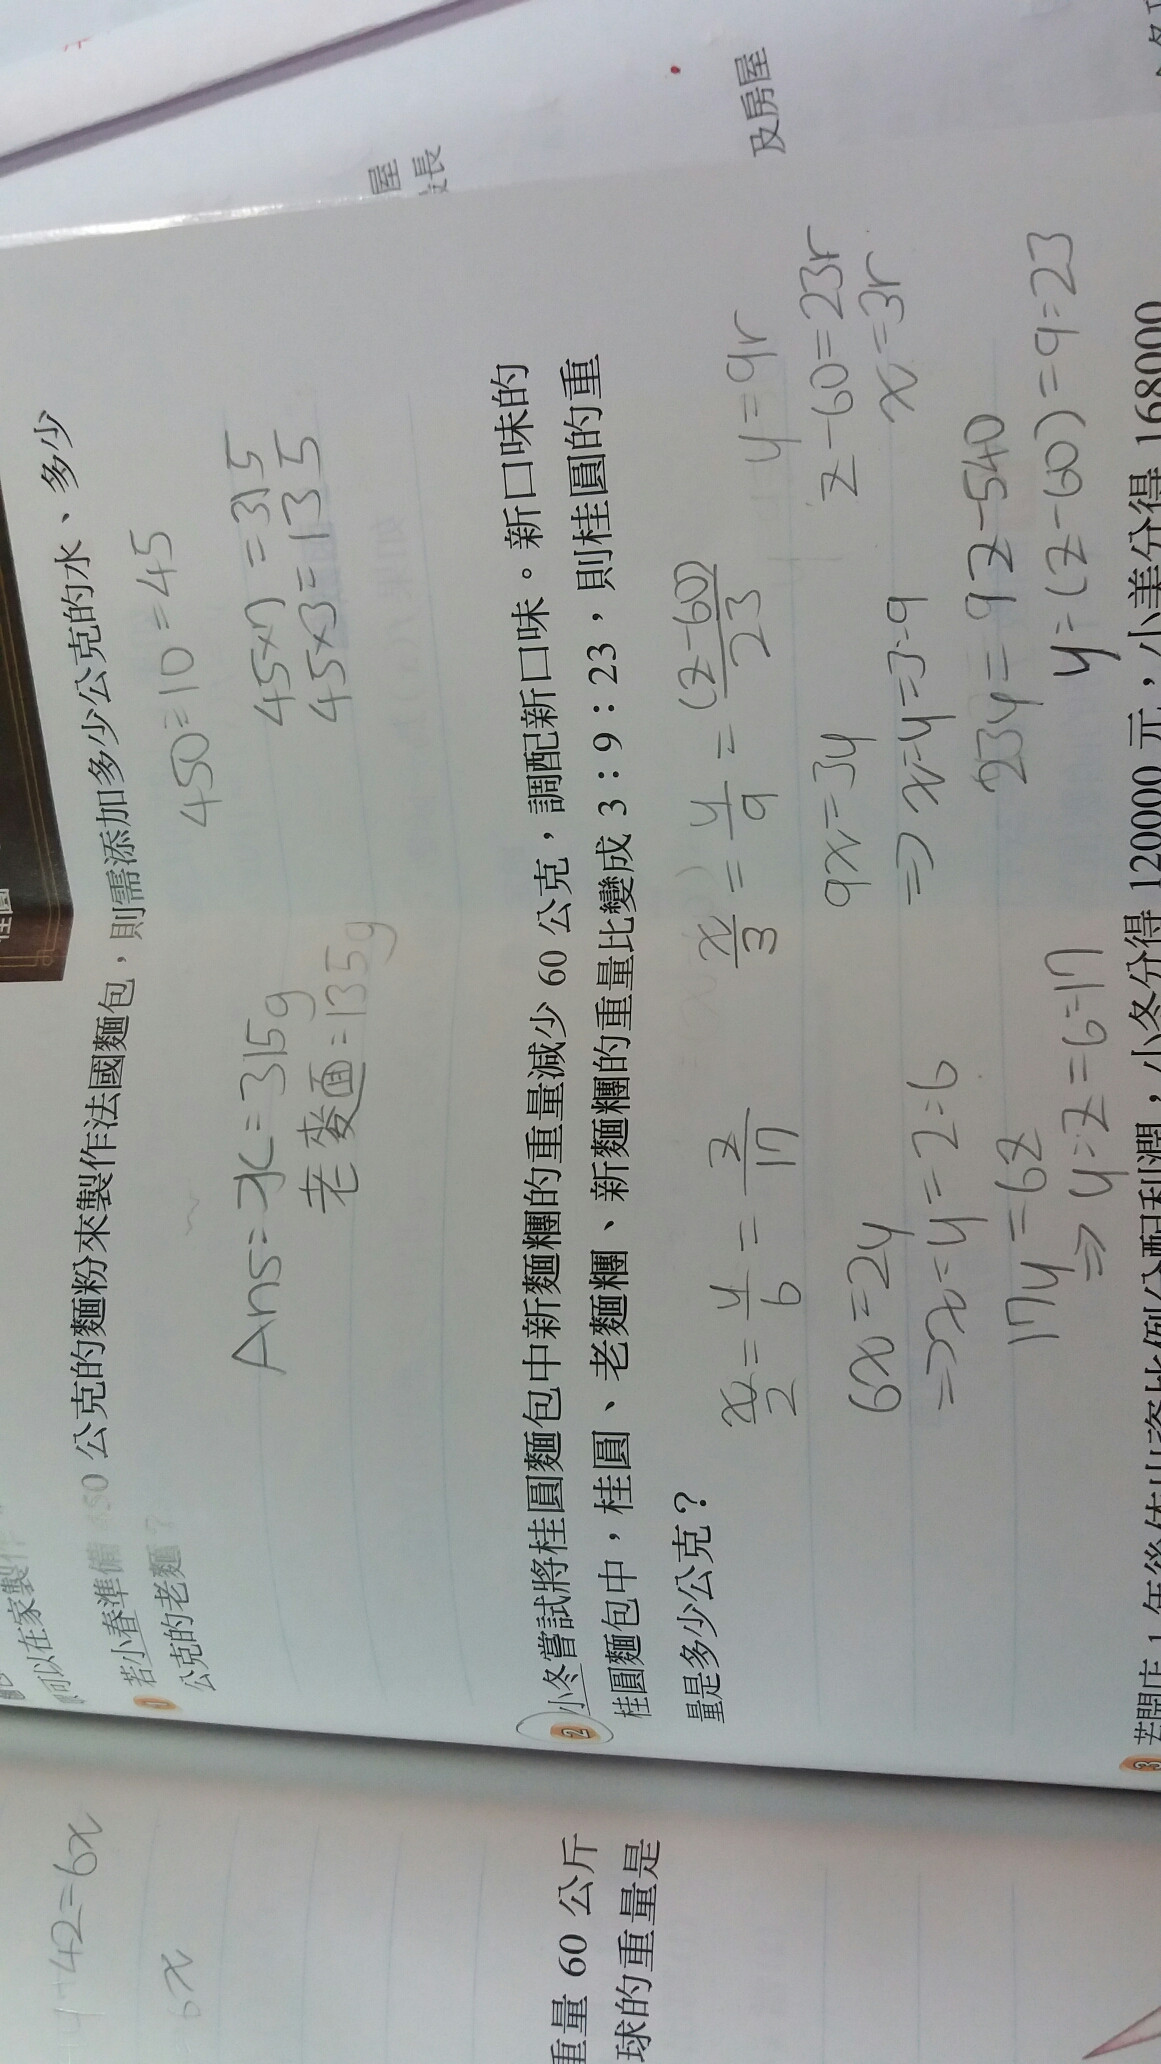 可以在家製作
1 若小春準備 450 公克的麵粉來製作法國麵包，則需添加多少公克的水、多少
公克的老麵？
450÷10=45
Ans=水=315g
45×7=315
老麵=135g
45×3=135
2 小冬嘗試將桂圓麵包中新麵糰的重量減少 60 公克，調配新口味。新口味的
桂圓麵包中，桂圓、老麵糰、新麵糰的重量比變成 3：9：23，則桂圓的重
量是多少公克？
x/2=y/6=z/17
x/3=y/9=(z-60)/23
y=9r
z-60=23r
x=3r
6x=2y
9x=3y
⇒x:y=2:6
⇒x:y=3:9
17y=6z
23y=9z-540
⇒y:z=6:17
y:(z-60)=9:23
3 若開店 1 年後依出資比例分配利潤，小冬分得 120000 元，小美分得 168000
屋
長
及房屋
42=6x
6x
重量 60 公斤
球的重量是